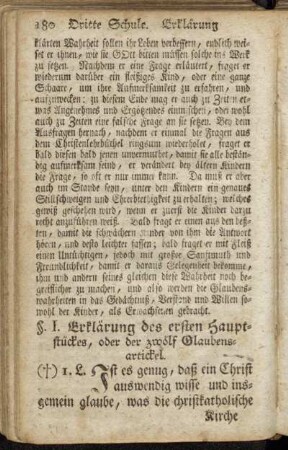 180 Dritte Schule. Erklärung
klärten Wahrheit sollen ihr Leben verbessern, endlich wei-
set er ihnen, wie sie GOtt bitten müssen solche ins Werk
zu setzen. Nachdem er eine Frage erläutert, fraget er
wiederum darüber ein fleißiges Kind, oder eine ganze
Schaare, um ihre Aufmerksamkeit zu erfahren, und
aufzuwecken; zu diesem Ende mag er auch zu Zeiten et-
was Angenehmes und Ergötzendes einmischen, oder wohl
auch zu Zeiten eine falsche Frage an sie setzen. Bey dem
Ausfragen hernach, nachdem er einmal die Fragen aus
dem Christenlehrbüchel ringsum wiederholet, fraget er
bald diesen bald jenen unvermuthet, damit sie alle bestän-
dig aufmerksam seind, er verändert bey ältern Kindern
die Frage, so oft er nur immer kann. Da muß er aber
auch im Stande seyn, unter den Kindern ein genaues
Stillschweigen und Ehrerbietigkeit zu erhalten; welches
gewiß geschehen wird, wenn er zuerst die Kinder darzu
recht anzuführen weiß. Bald fragt er einen aus den bes-
ten, damit die schwächern Kinder von ihm die Antwort
hören, und desto leichter fassen; bald fraget er mit Fleiß
einen Untüchtigen, jedoch mit großer Sanftmuth und
Freundlichkeit, damit er daraus Gelegenheit bekomme,
ihm und andern seines gleichen diese Wahrheit noch be-
greiflicher zu machen, und also werden die Glaubens-
wahrheiten in das Gedächtniß, Verstand und Willen so-
wohl der Kinder, als Erwachsenen gebracht.
§. I. Erklärung des ersten Haupt-
stückes, oder der zwölf Glaubens-
artickel.
(†) 1. L. Ist es genug, daß ein Christ
auswendig wisse und ins-
gemein glaube, was die christkatholische
Kirche